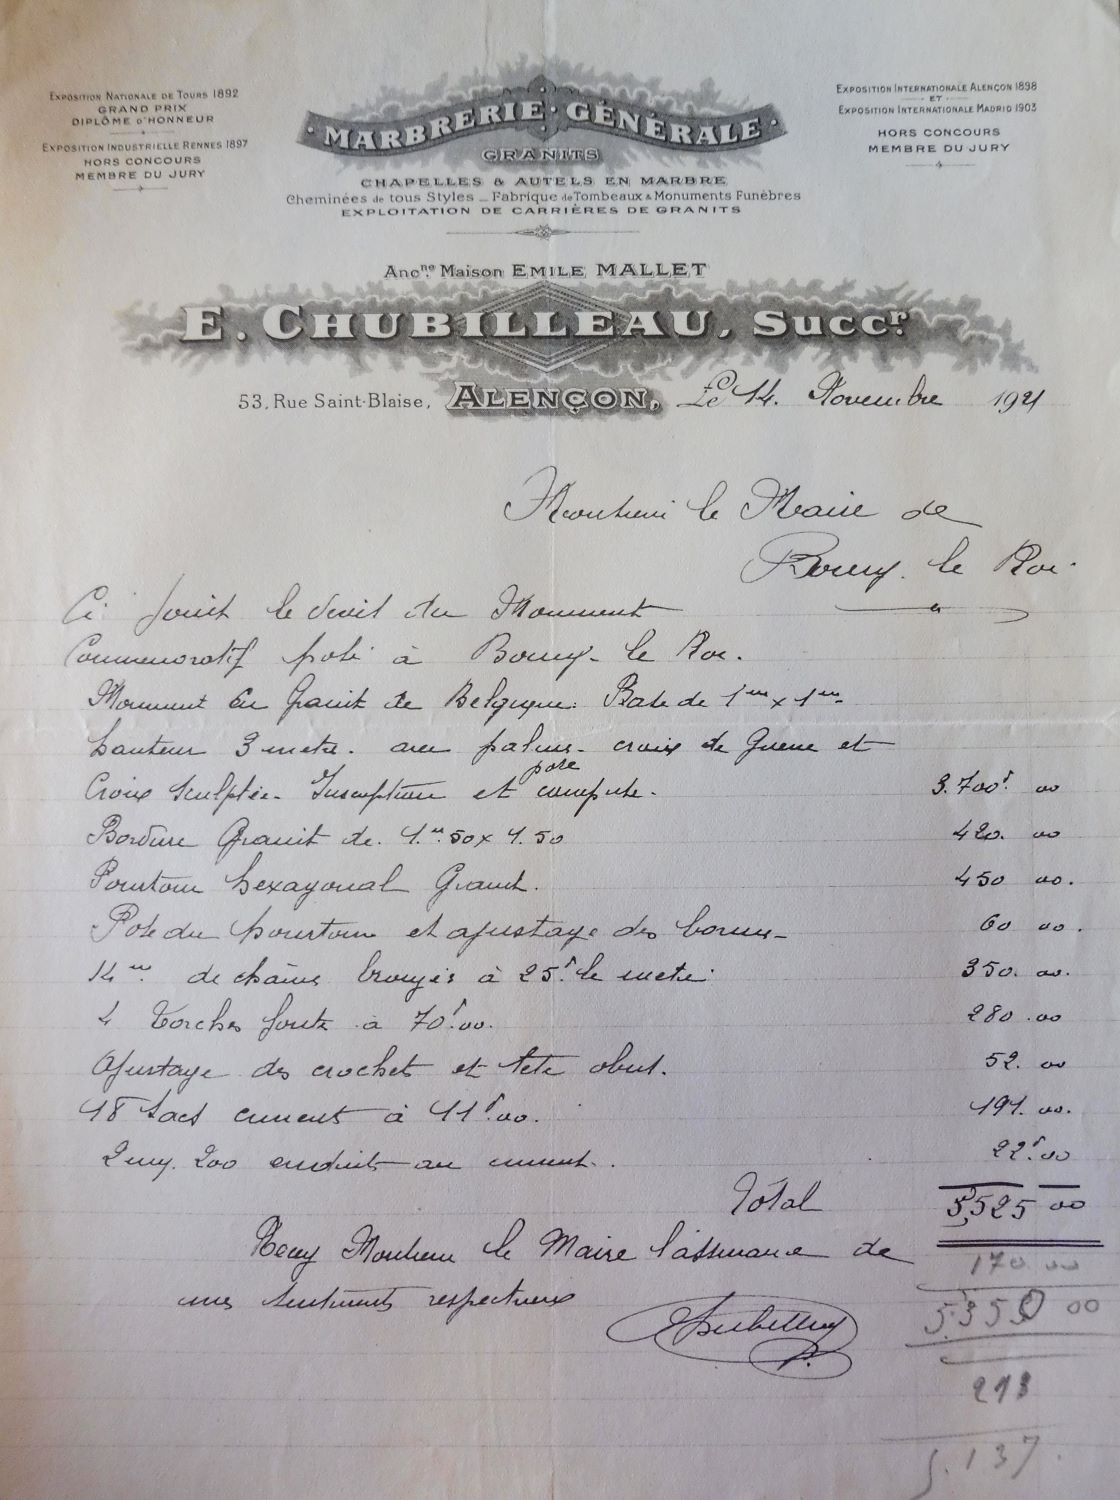 Exposition Nationale de Tours 1892
GRAND PRIX
DIPLÔME D'HONNEUR
Exposition Industrielle Rennes 1897
HORS CONCOURS
MEMBRE DU JURY
MARBRERIE · GÉNÉRALE
GRANITS
CHAPELLES & AUTELS EN MARBRE
Cheminées de tous Styles _ Fabrique de Tombeaux & Monuments Funèbres
EXPLOITATION DE CARRIÈRES DE GRANITS
Exposition Internationale Alençon 1898
ET
Exposition Internationale Madrid 1903
HORS CONCOURS
MEMBRE DU JURY
Ancne. Maison EMILE MALLET
E. CHUBILLEAU, Succr.
53, Rue Saint-Blaise, ALENÇON, Le 14. Novembre 1921
Monsieur le Maire de
le Roi.
Ci joint le devis du Monument
Commemoratif posé à le Roi.
Monument en Granit de Belgique. Base de 1m x 1m
hauteur 3 mets. avec palmes. croix de Guerre et
Croix sculptée. Inscription et pose comprise. 3.700f. 00
Bordure Granit de. 1.m.50 x 1.50 420. 00
Pourtour hexagonal Granit. 450 00.
Pose du pourtour et ajustage des bornes 60 00.
14m. de chaînes à 25f. le metre. 350. 00.
4 Torches fonte à 70f.00. 280.00
Ajustage des crochets et tete obus. 52. 00
18 sacs ciment à 11f.00. 191.00.
200 enduits au ciment. 22f.00
Total 5,525 00
170 00
Monsieur le Maire l'assurance de
mes sentiments respectueux 5.355 00
Chubilleau
213
5.137.